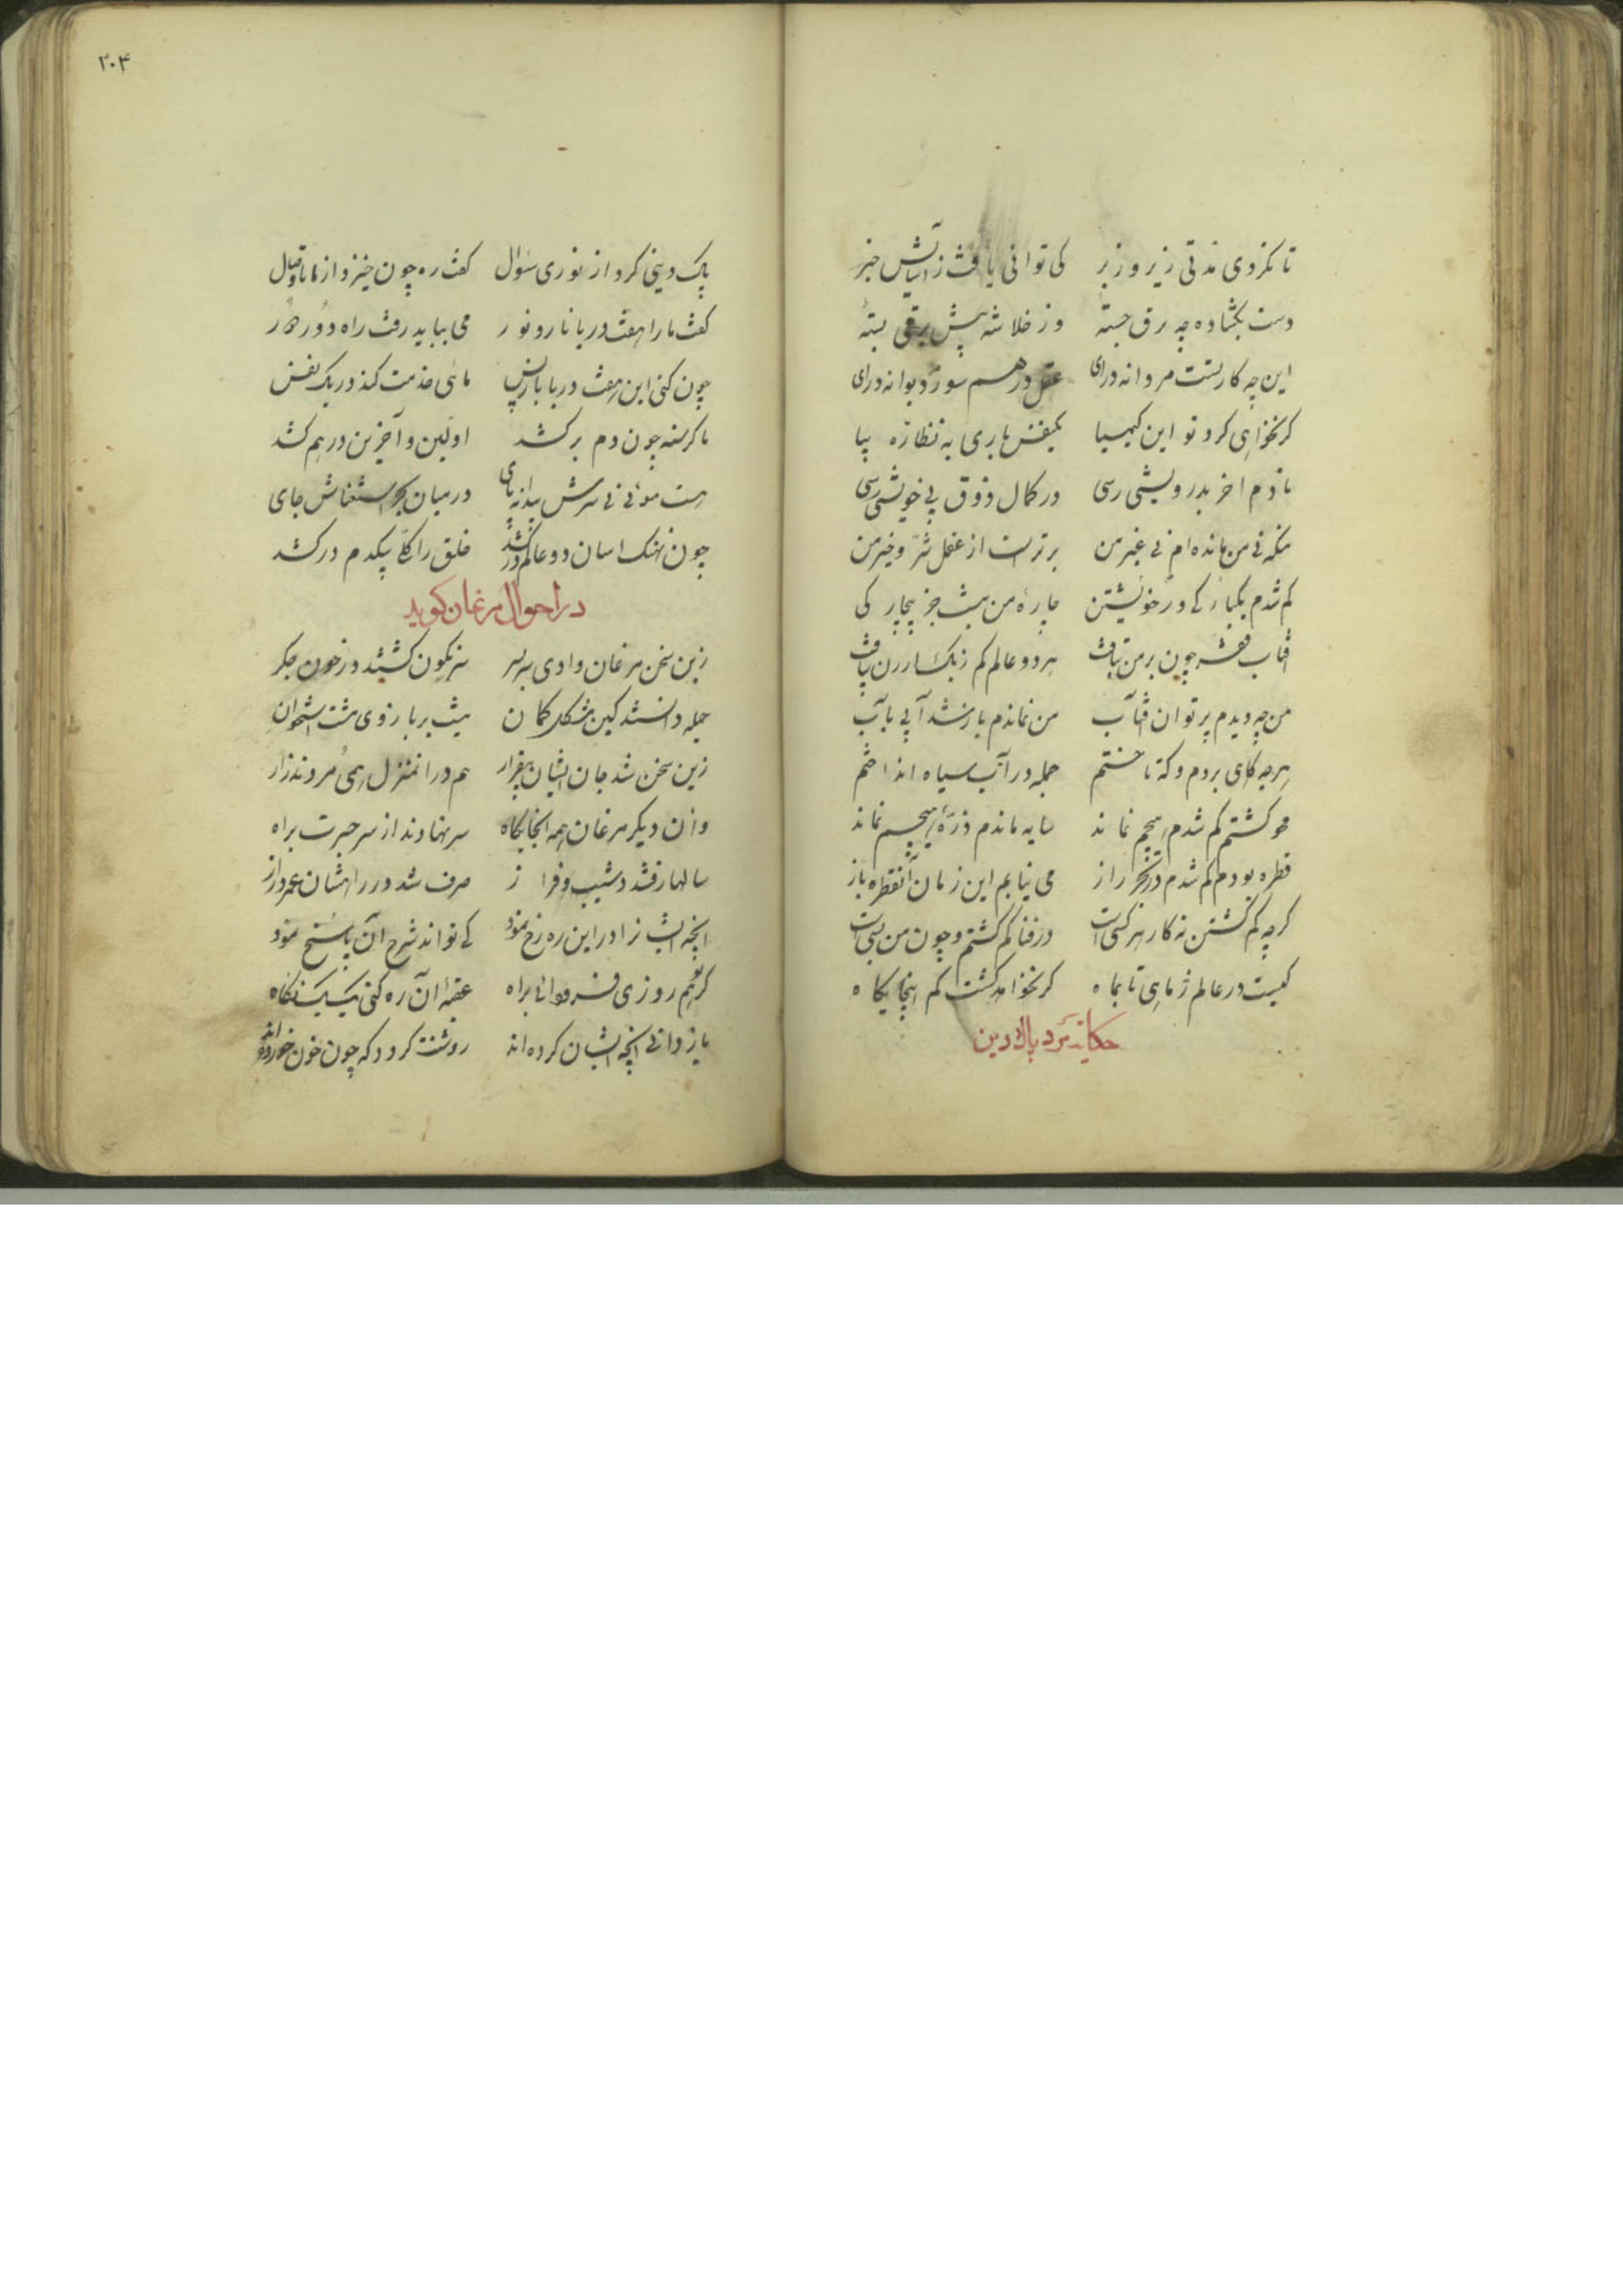 تا نکردی مدتی زیر و زبر کی توانی یافت ز آسایش خبر
دست بکشاده چو برق جستهٔ وز خلاشه پیش برقی بستهٔ
این چه کار تست مردانه درای عقل درهم سوز دیوانه درای
کر نخواهی کرد تو این کیمیا یکنفس باری به نظاره بیا
تا دم اخر بدرویشی رسی در کمال ذوق بی خویشی رسی
منکه نی من مانده ام نی غیر من برترست از عقل شر و خیر من
کم شدم یکبارکی در خویشتن چارهٔ من نیست جز بیچارکی
افتاب فقر چون بر من بتافت هر دو عالم کم ز یک ارزن بیافت
من چو دیدم پرتو ان افتاب من نماندم باز شد آبی بآب
هرچه کاهی بردم و که باختم جمله در آب سیاه انداختم
محو کشتم کم شدم هیچم نماند سایه ماندم ذرهٔ هیچم نماند
قطره بودم کم شدم در بحر راز می نیابم این زمان آنقطره باز
کرچه کم کشتن نه کار هر کسی است در فنا کم کشتم و چون من بسی است
کیست در عالم ز ماهی تا بماه کو نخواهد کشت کم اینجایکاه
حکایت مرد پاک دین
۲۰۴
پاک دینی کرد از نوری سوال کفت ره چون خیزد از ما تا وصال
کفت ما را هفت دریا نار و نور می بباید رفت راه دور دور
چون کنی این هفت دریا باز پس ماهی جذبت کند در یک نفس
ماهی کز سینه چون دم برکشد اولین و آخرین درهم کشد
هست حوتی نی سرش پیدا نه پای در میان بحر استغناش جای
چون نهنک اسان دو عالم درکشد خلق را کلی بیکدم درکشد
در احوال مرغان کوید
زین سخن مرغان وادی سربسر سرنکون کشتند در خون جکر
جمله دانستند کین مشکل کمان نیست بر بازوی مشت استخوان
زین سخن شد جان ایشان بیقرار هم در ان منزل همی مردند زار
وان دیکر مرغان همه انجایکاه سر نهادند از سر حیرت براه
سالها رفتند در شیب و فراز صرف شد در راهشان عمر دراز
انچه ایشانرا در این ره رخ نمود کی تواند شرح آن پاسخ نمود
کر تو هم روزی فرود آئی براه عقبهٔ آن ره کنی یک یک نکاه
باز دانی انچه ایشان کرده اند روشنت کردد که چون خون خورده اند